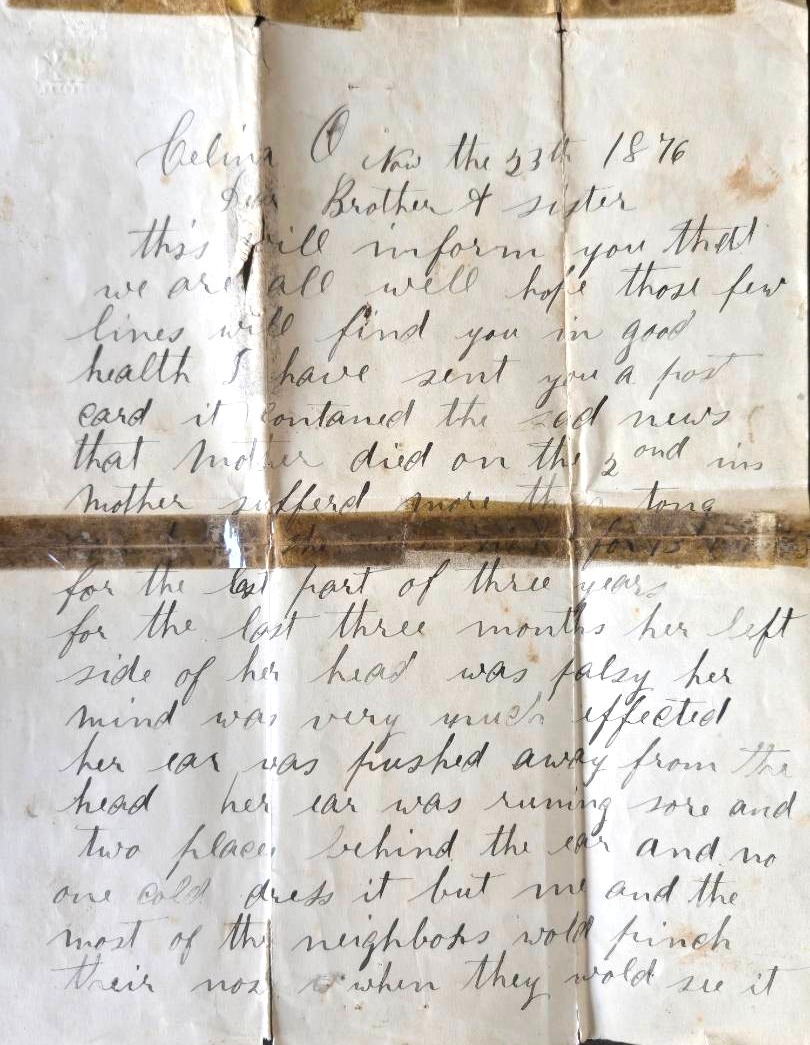 Celina O Nov the 23th 1876
Dear Brother & sister
this will inform you that
we are all well hope those few
lines will find you in good
health I have sent you a post
card it contaned the sad news
that Mother died on the 2ond ins
mother sufferd more than tong
she
for the last part of three years
for the last three months her left
side of her head was palsy her
mind was very much effected
her ear was pushed away from the
head her ear was runing sore and
two places behind the ear and no
one cold dress it but me and the
most of the neighbors wold pinch
their nose when they wold see it